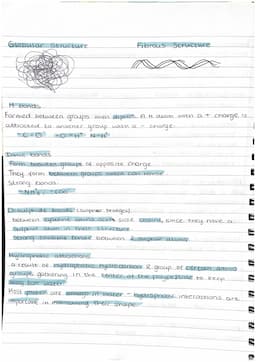 Globular Structure
Fibrous Structure
H bonds
Formed between groups with dipoles. A H atom with a + charge is
attracted to another group with a - charge.
Ionic bonds
Form between groups of opposite charge
They form between groups which can
Strong bonds
Disulphide bonds (sulphur bridges)
between cysteine amino acids side chains, since they have a
sulphur atom in their structure
Strong covalent bonds between 2 sulphur atoms
Hydrophobic attractions
a result of hydrophobic hydrocarbon R group of certain amino
groups gathering in the center of the polypeptide to keep
away from water
Most protein are in water - hydrophobic interactions are
important in maintaining their shape.